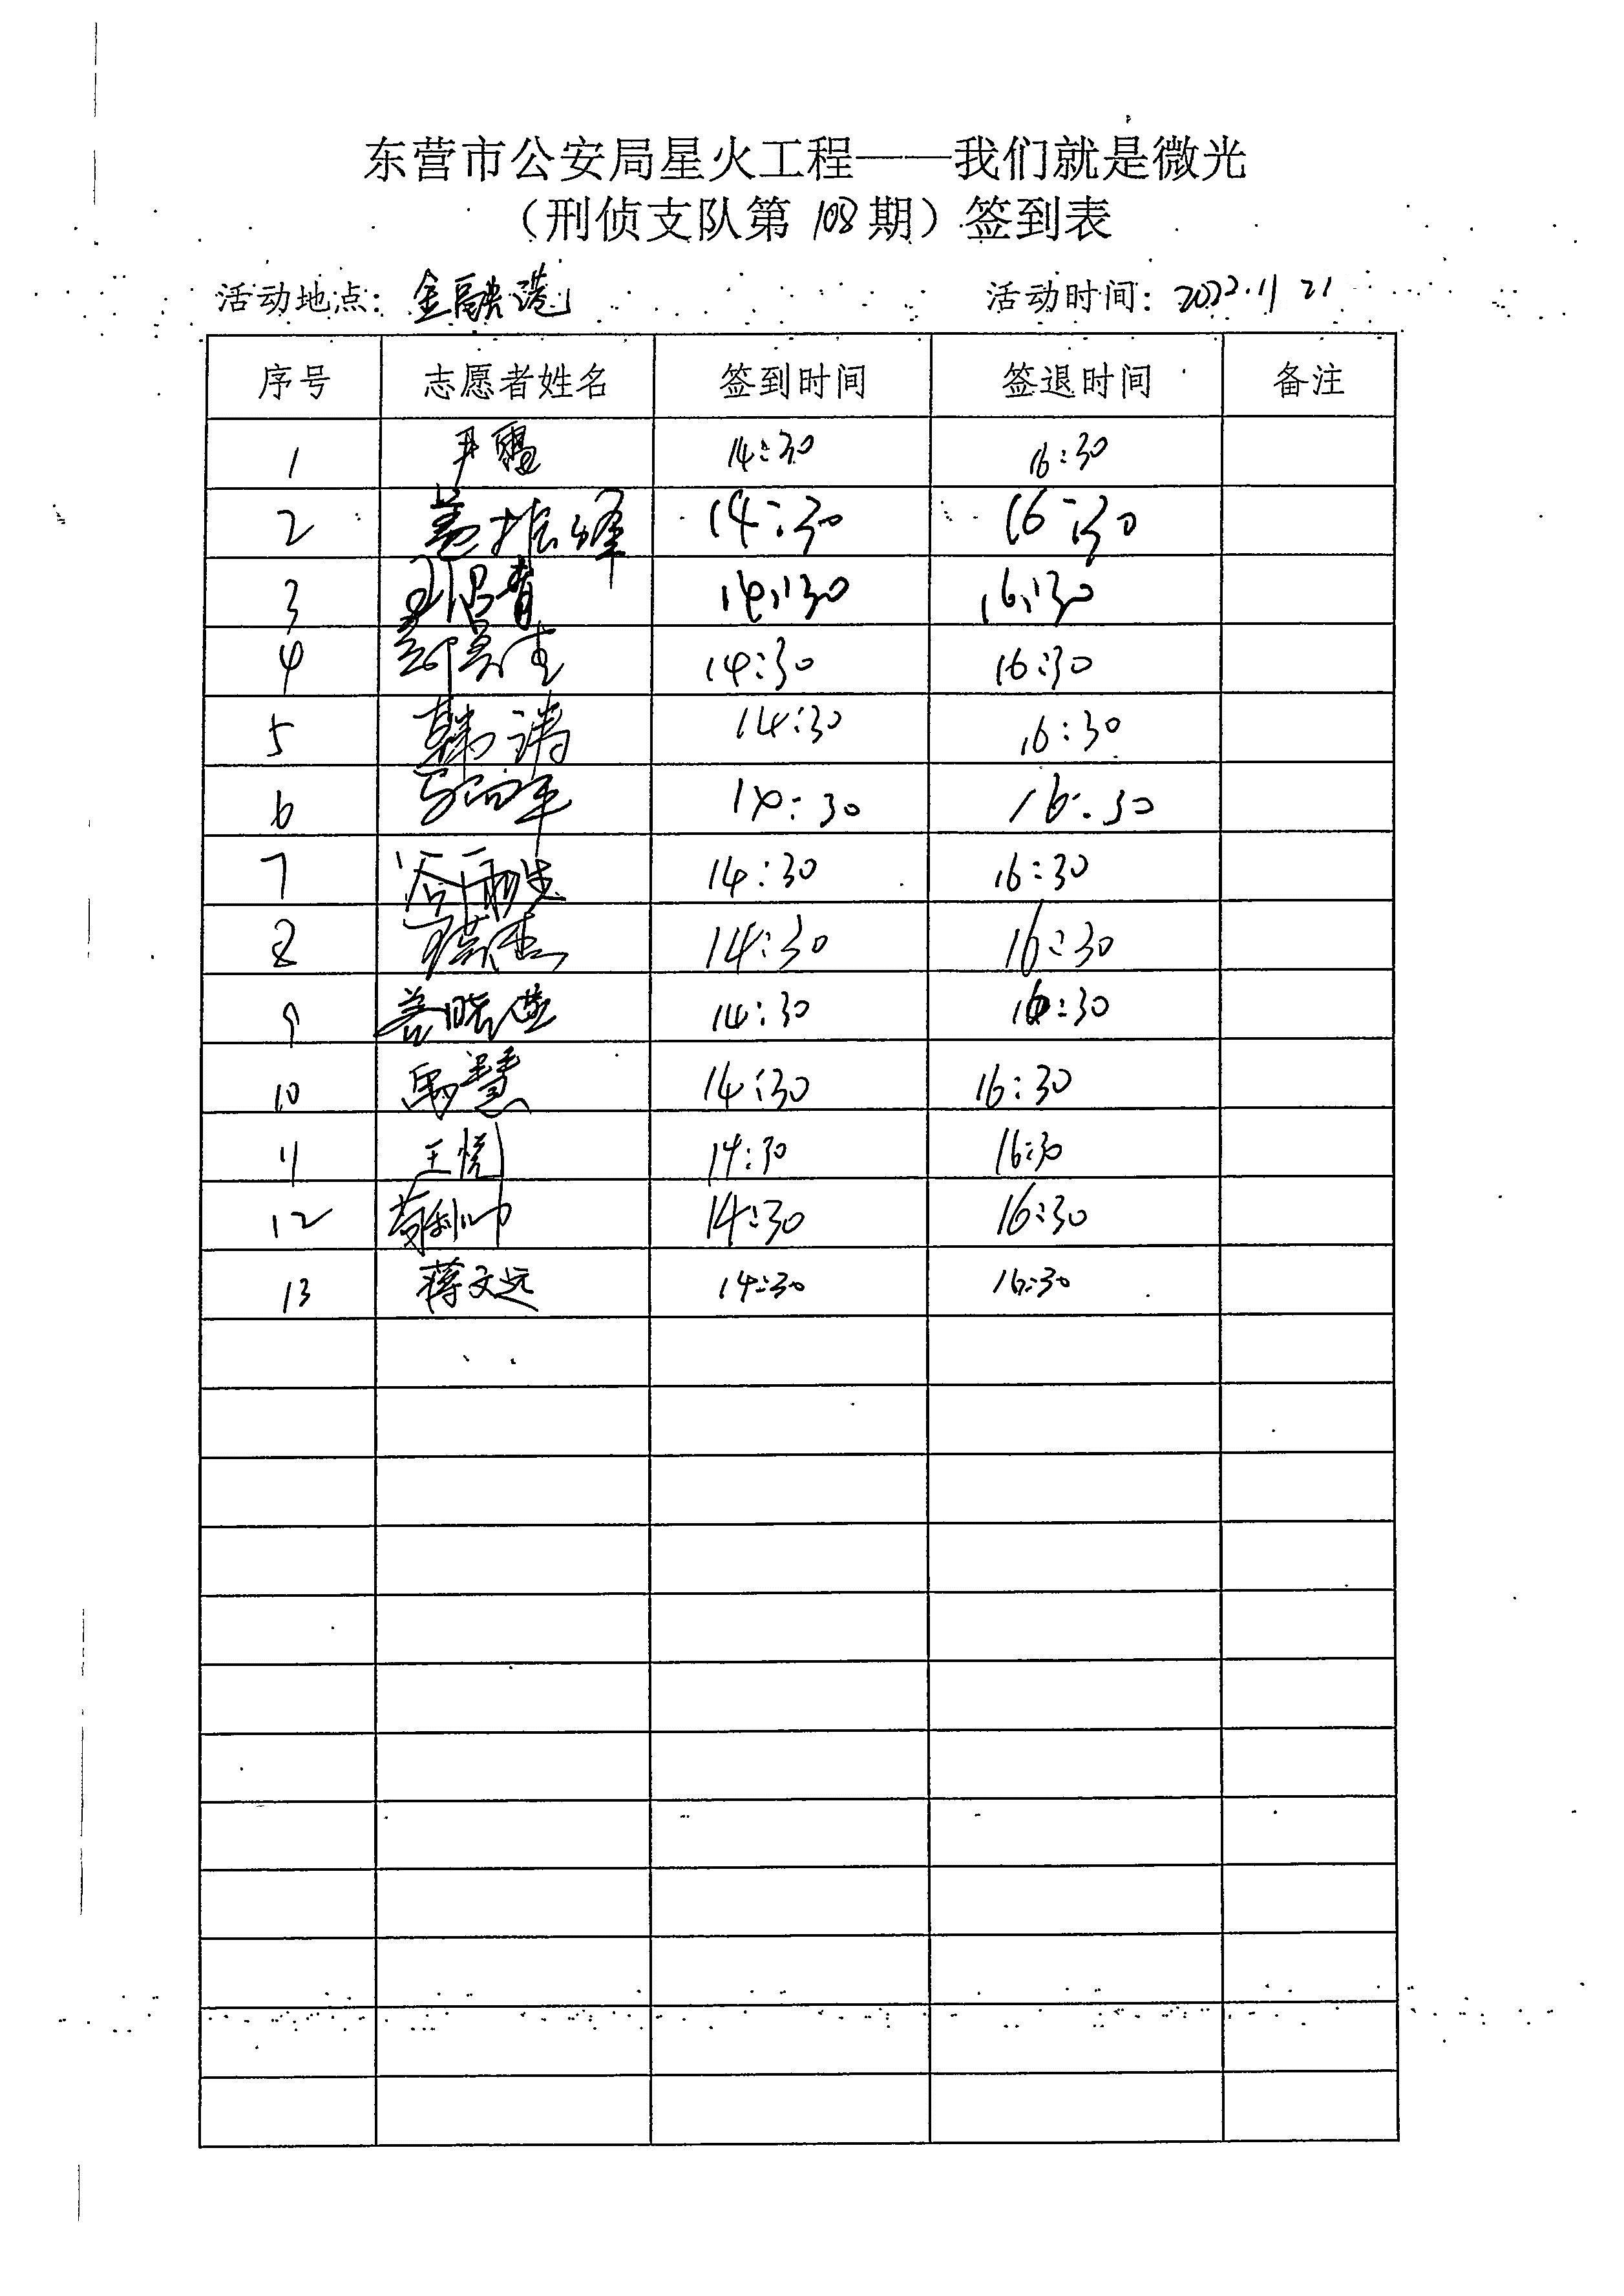 东营市公安局星火工程——我们就是微光
（刑侦支队第108期）签到表
活动地点：金融港 活动时间：2022.11 21
序号 志愿者姓名 签到时间 签退时间 备注
1 尹 14:30 16:30
2 盖振峰 14:30 16:30
3 14:30 16:30
4 14:30 16:30
5 韩涛 14:30 16:30
6 14:30 16:30
7 14:30 16:30
8 14:30 16:30
9 盖晓 14:30 16:30
10 禹慧 14:30 16:30
11 王悦 14:30 16:30
12 苟利帅 14:30 16:30
13 蒋文远 14:30 16:30